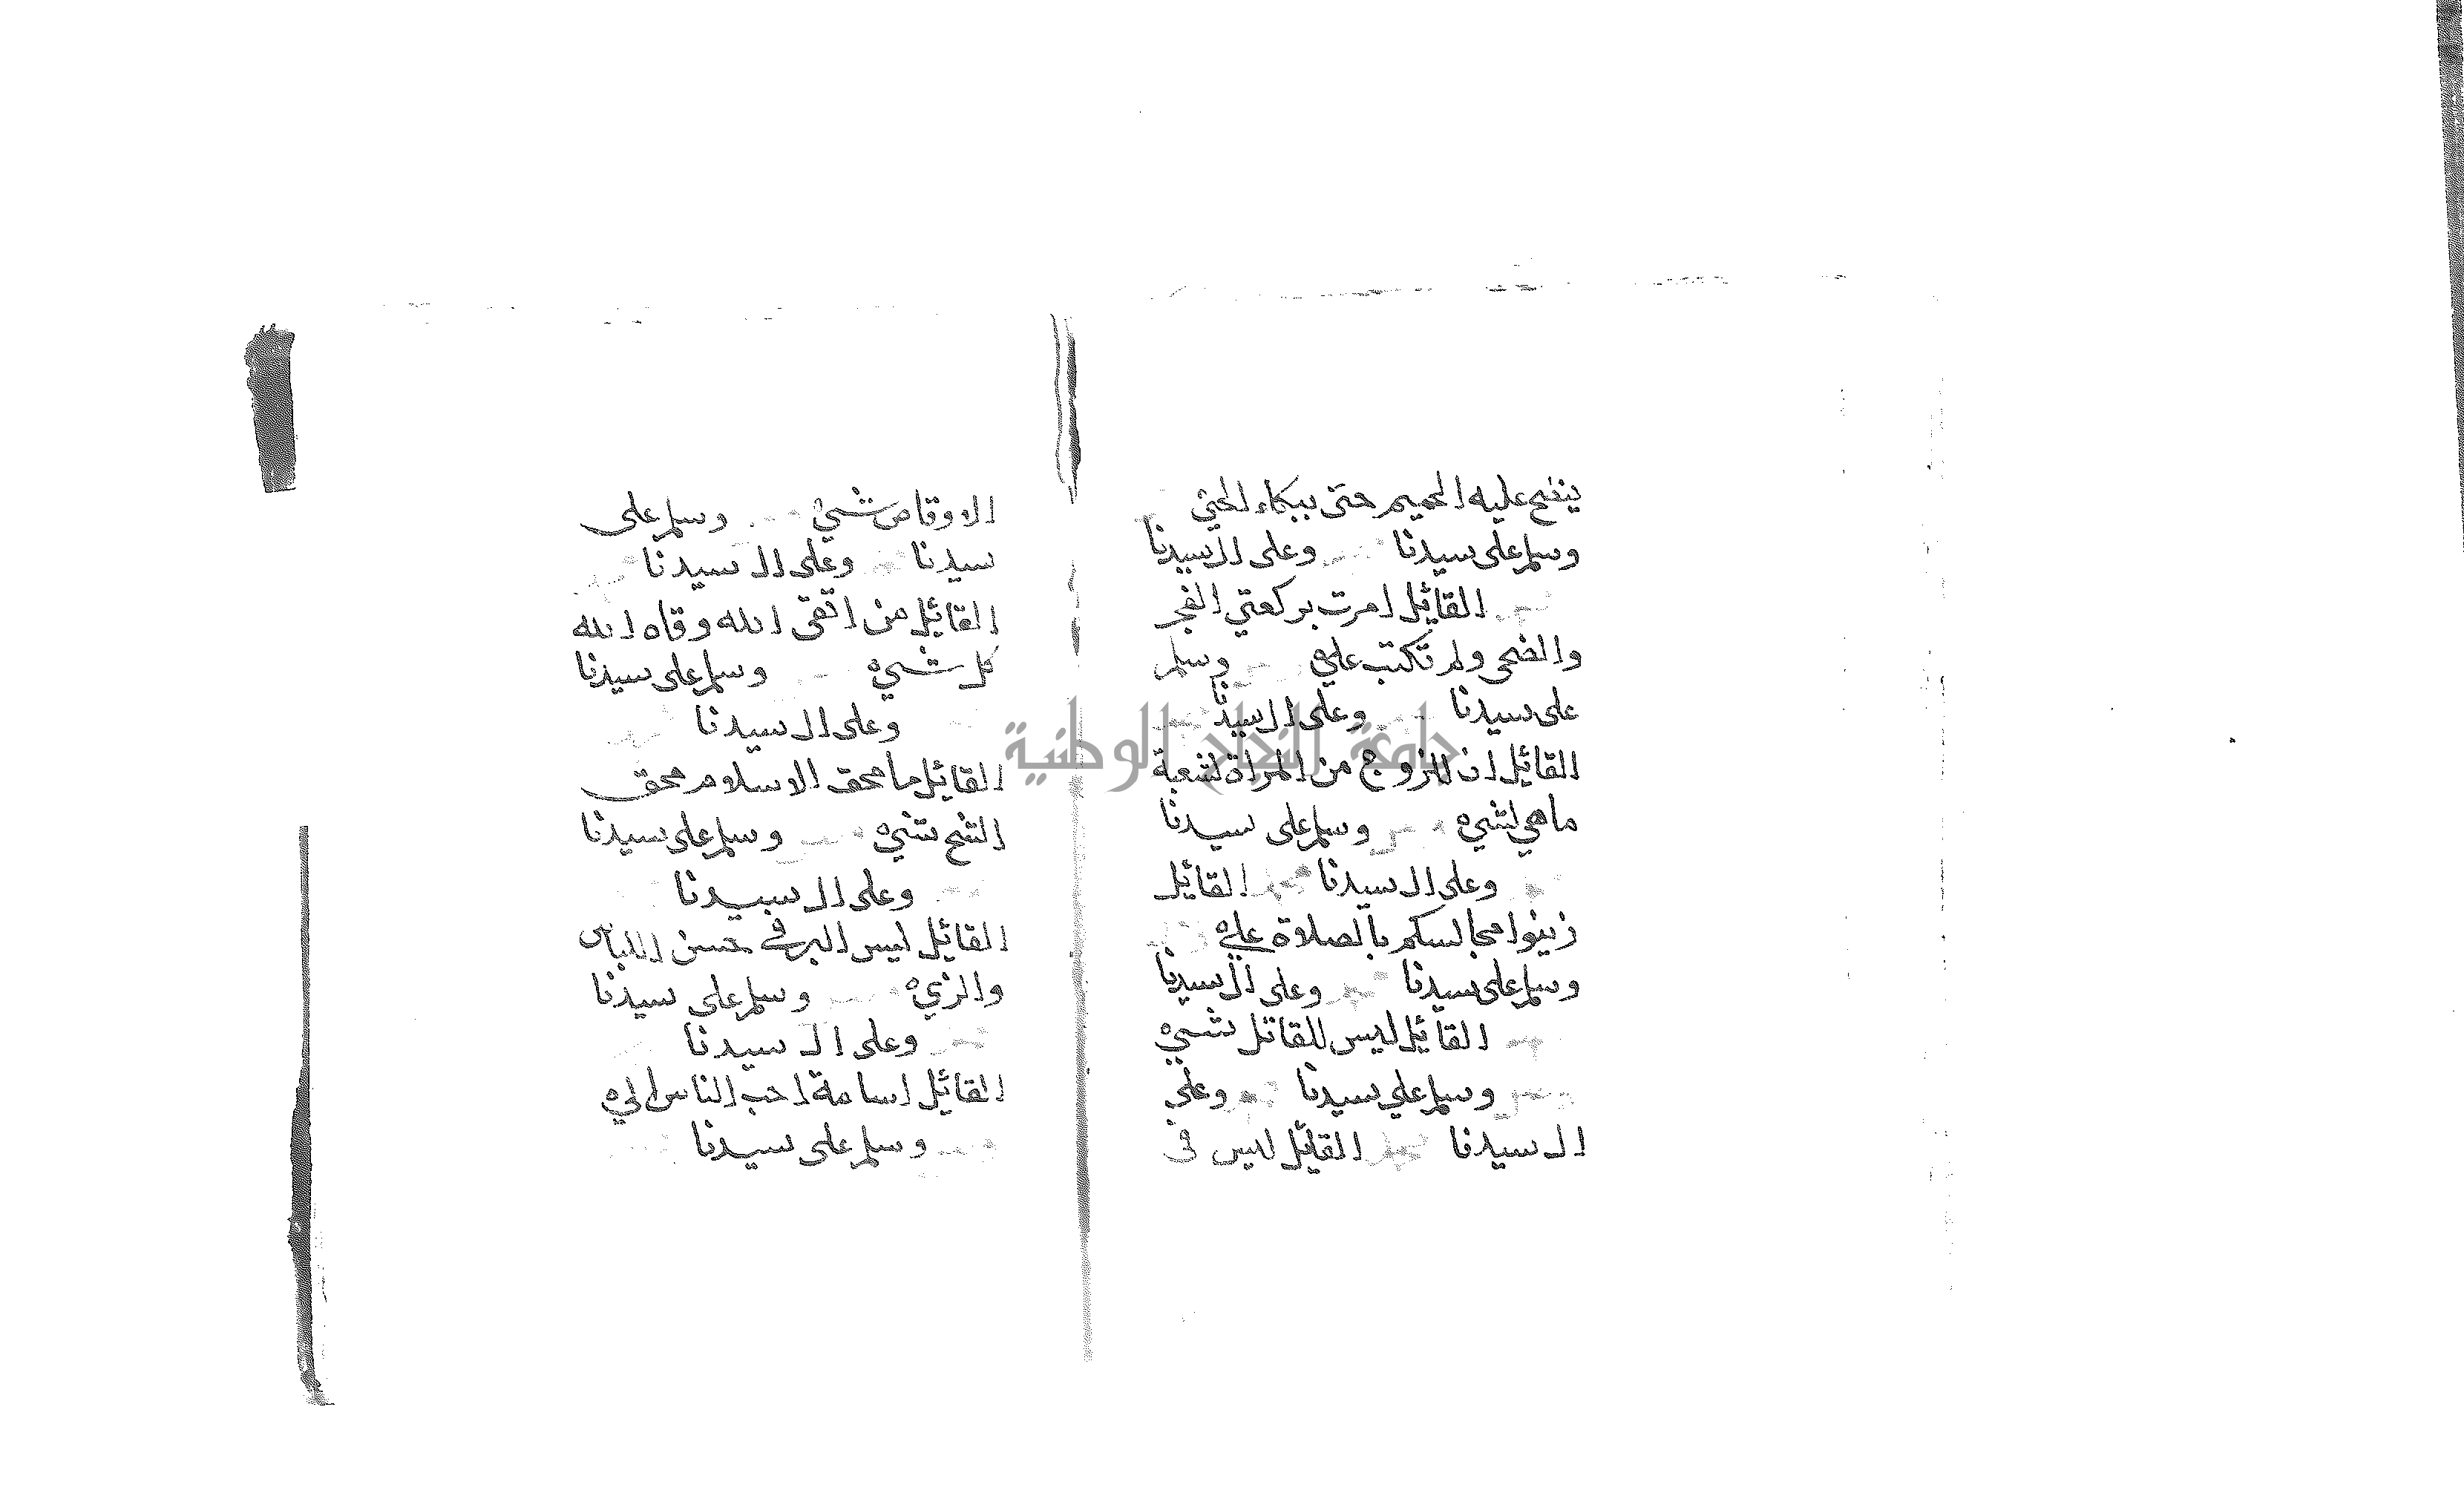 ينضح عليه الحميم حتى ببكاء الحي
وسلم على سيدنا وعلى ال سيدنا
القائل امرت بركعتي الفجر
والضحى ولم تكتب عليه وسلم
على سيدنا وعلى ال سيدنا
القائل ان للزوج من المراة لشعبة
ما هي لشيء وسلم على سيدنا
وعلى ال سيدنا القائل
زينوا مجالسكم بالصلاة علي
وسلم على سيدنا وعلى ال سيدنا
القائل ليس للقاتل شيء
وسلم على سيدنا وعلى
ال سيدنا القائل ليس في
الاوقاص شيء وسلم على
سيدنا وعلى ال سيدنا
القائل من اتقى الله وقاه الله
كل شيء وسلم على سيدنا
وعلى ال سيدنا
القائل ما محق الاسلام محق
الشح شيء وسلم على سيدنا
وعلى ال سيدنا
القائل ليس البر في حسن اللباس
والزي وسلم على سيدنا
وعلى ال سيدنا
القائل اسامة احب الناس الي
وسلم على سيدنا
جامعة النجاح الوطنية